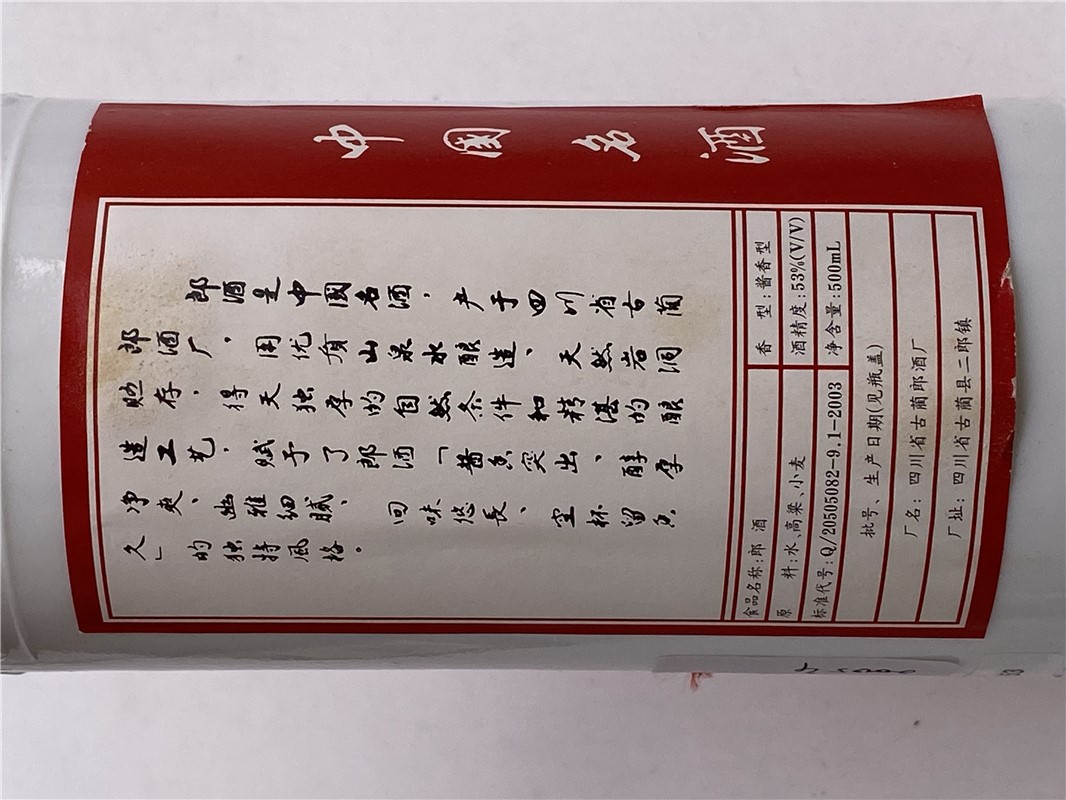 中國名酒
郎酒是中國名酒，产于四川省古蔺
郎酒厂，用优质山泉水酿造、天然岩洞
贮存，得天独厚的自然条件和精湛的酿
造工艺，赋予了郎酒「酱香突出、醇厚
净爽、幽雅细腻、回味悠長、空杯留香
久」的独特風格。
食品名称:郎 酒 香 型:酱香型
原 料:水、高粱、小麦 酒精度:53%(V/V)
标准代号:Q/20505082-9.1-2003 净含量:500mL
批号、生产日期(见瓶盖)
厂名:四川省古蔺郎酒厂
厂址:四川省古蔺县二郎镇